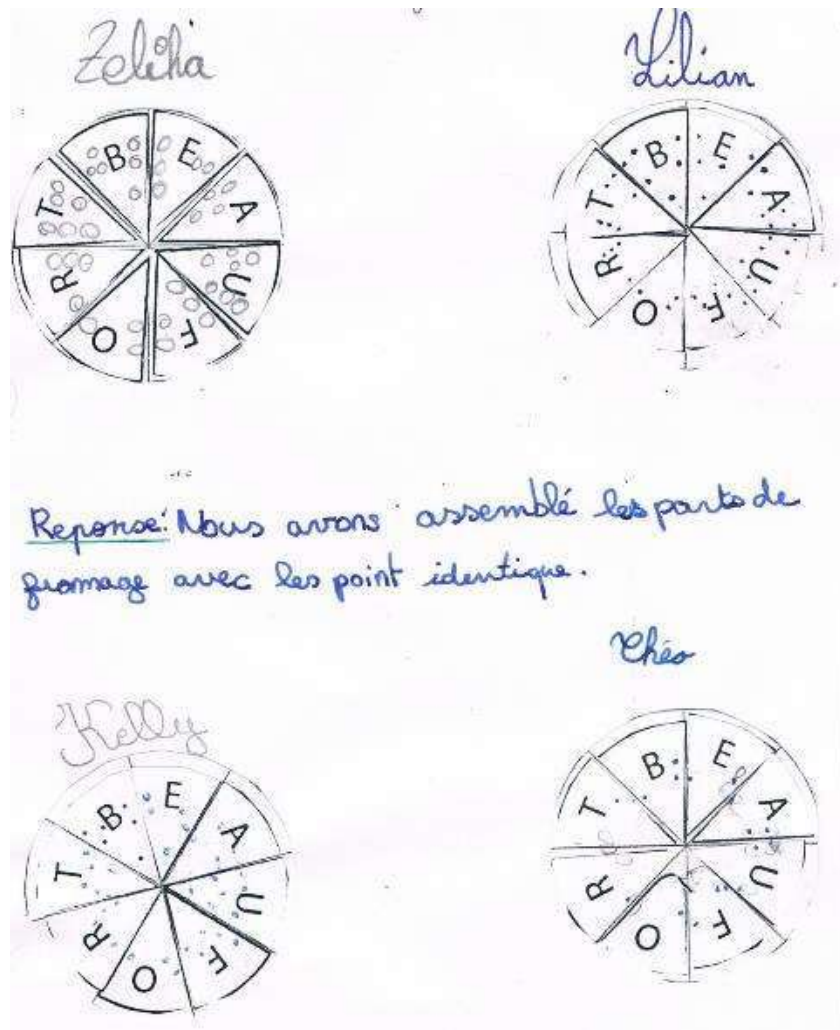 Zeliha
Lilian
B E A U F O R T
B E A U F O R T
Reponse: Nous avons assemblé les parts de
fromage avec les point identique.
Théo
Kelly
B E A U F O R T
B E A U F O R T